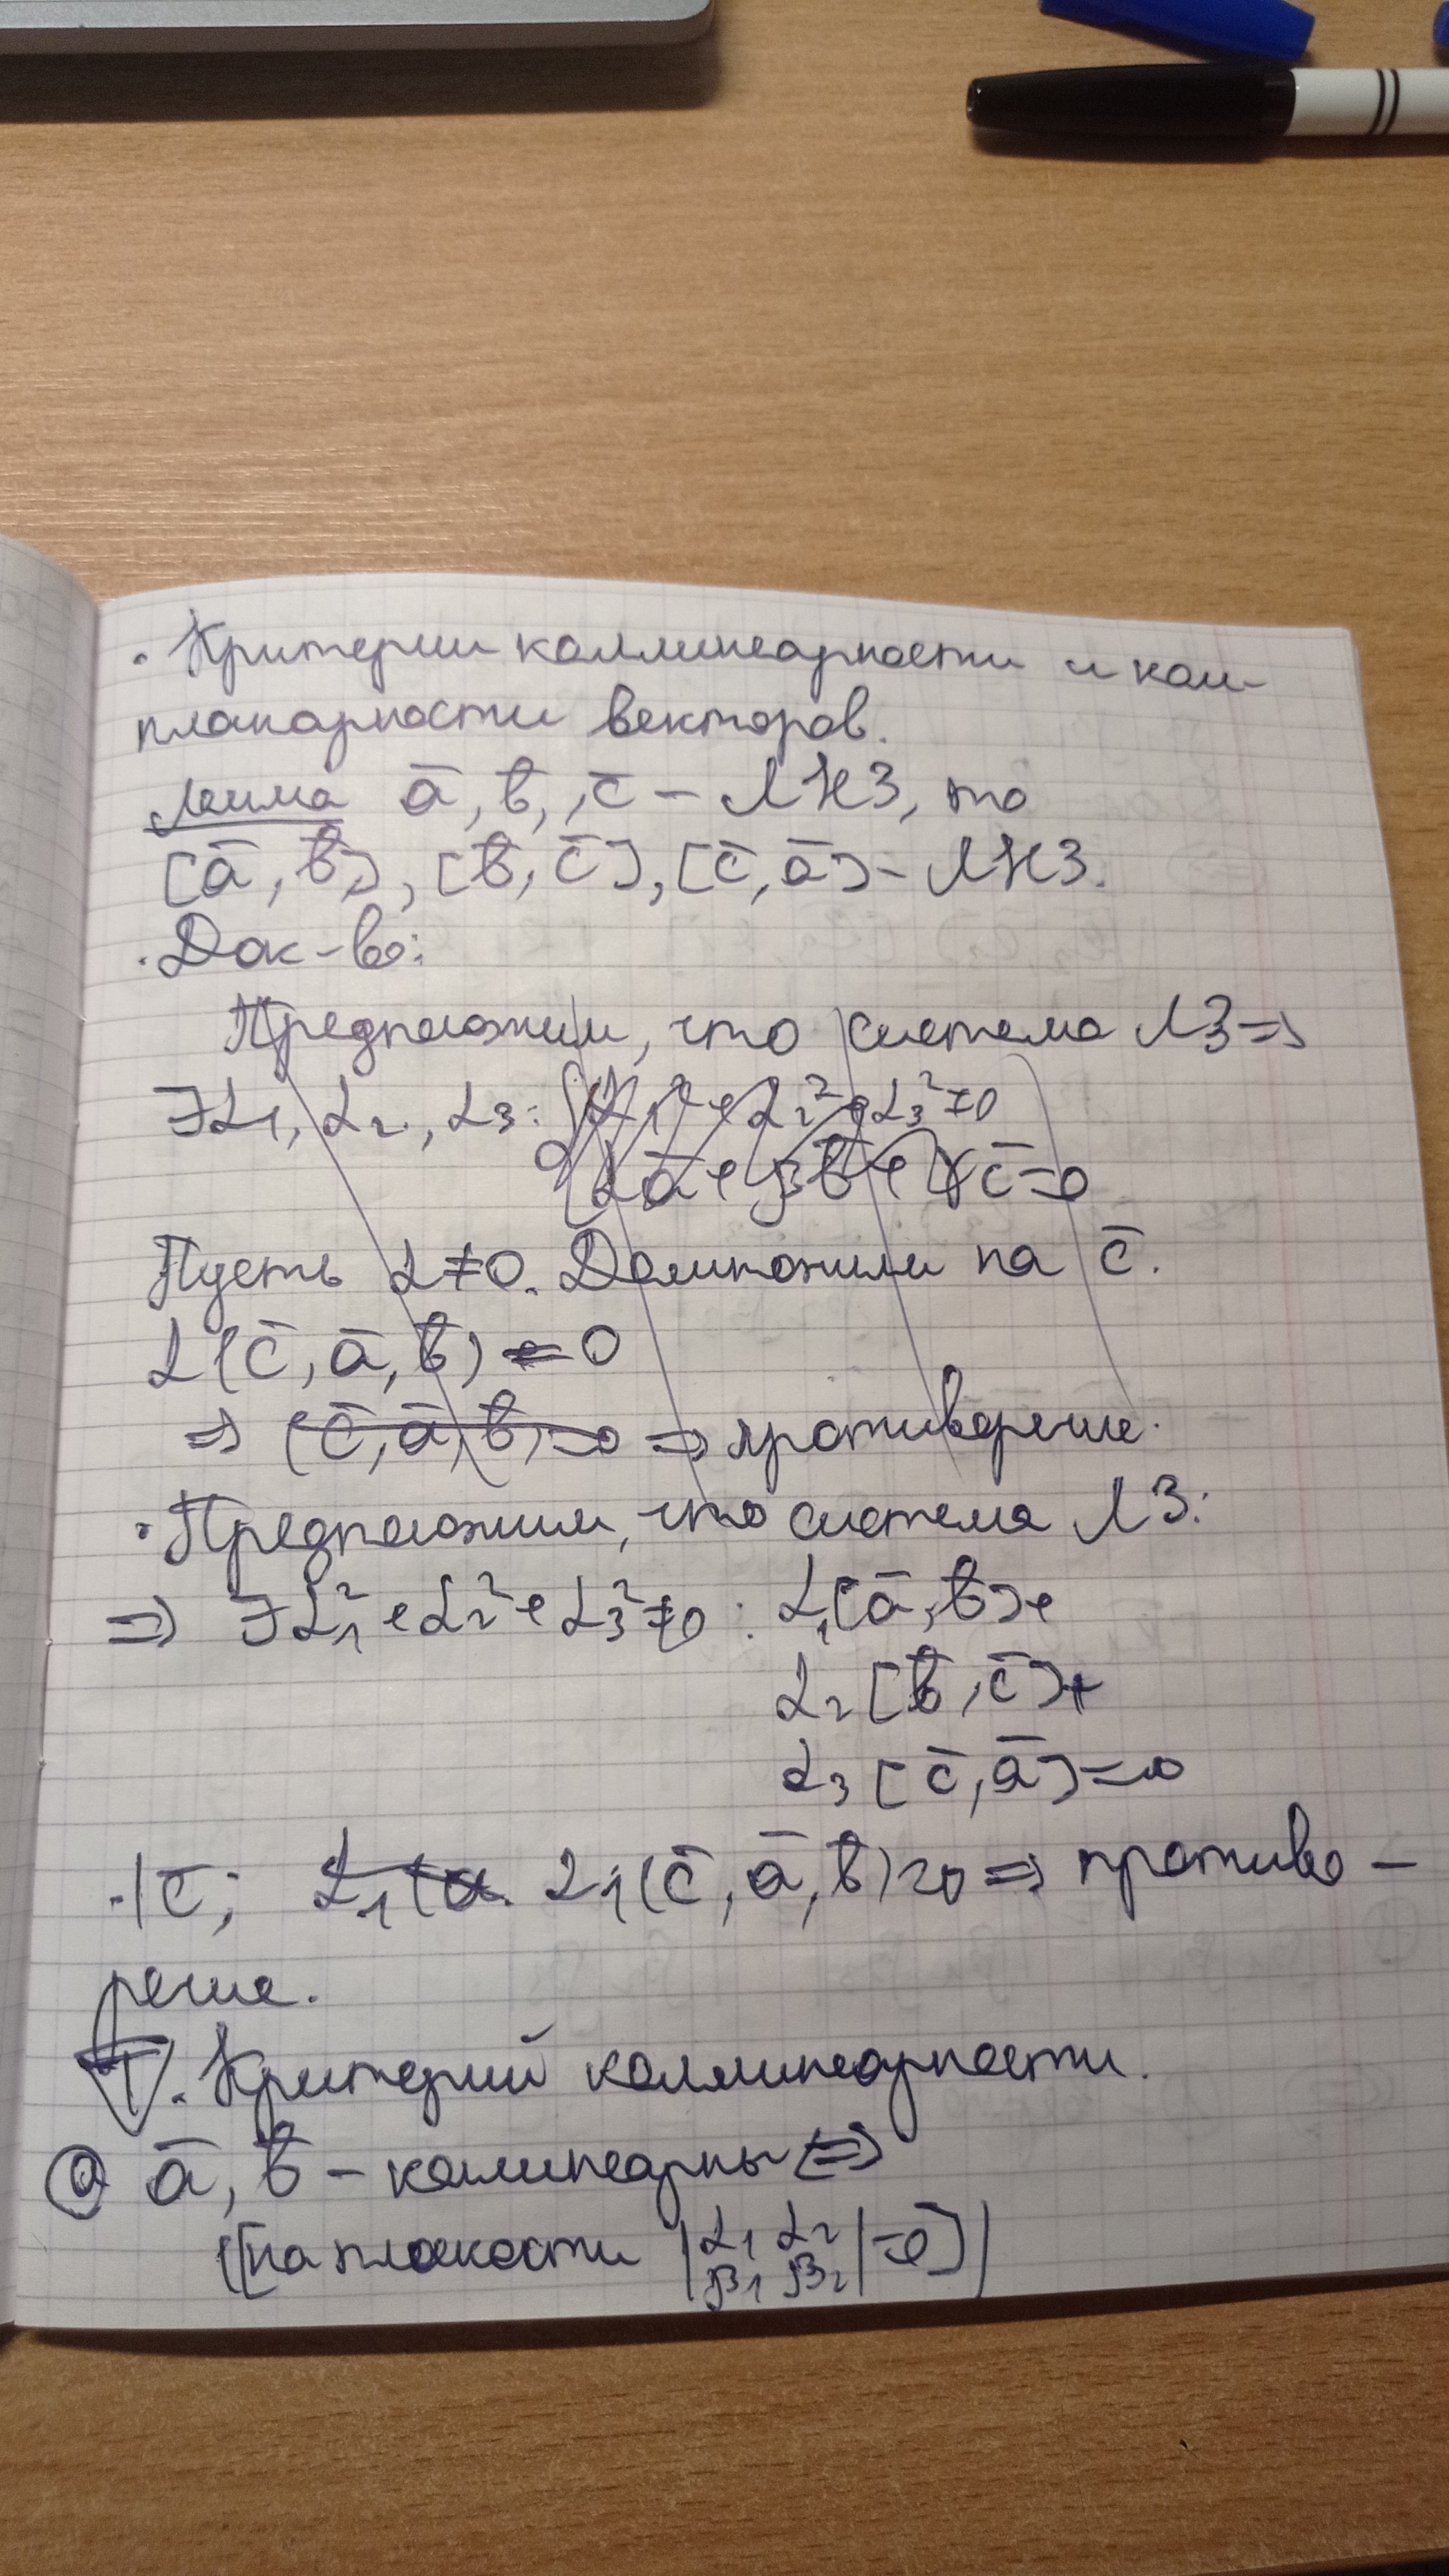 · Критерии коллинеарности и ком-
планарности векторов.
Лемма ā, b̄, c̄ - ЛНЗ, то
[ā, b̄], [b̄, c̄], [c̄, ā] - ЛНЗ.
· Док-во:
Предположим, что система ЛЗ ⇒
∃α₁, α₂, α₃: { α₁² + α₂² + α₃² ≠ 0
αā + βb̄ + γc̄ = 0
Пусть α ≠ 0. Домножим на c̄.
α(c̄, ā, b̄) = 0
⇒ (c̄, ā, b̄) = 0 ⇒ противоречие.
· Предположим, что система ЛЗ:
⇒ ∃α₁² + α₂² + α₃² ≠ 0 : α₁[ā, b̄] +
α₂[b̄, c̄] +
α₃[c̄, ā] = 0
·| c̄; α₁(a α₁(c̄, ā, b̄) = 0 ⇒ противо-
речие.
Т. Критерий коллинеарности.
а ā, b̄ - коллинеарны ⇔
([на плоскости |α₁ α₂| = 0])
|β₁ β₂|